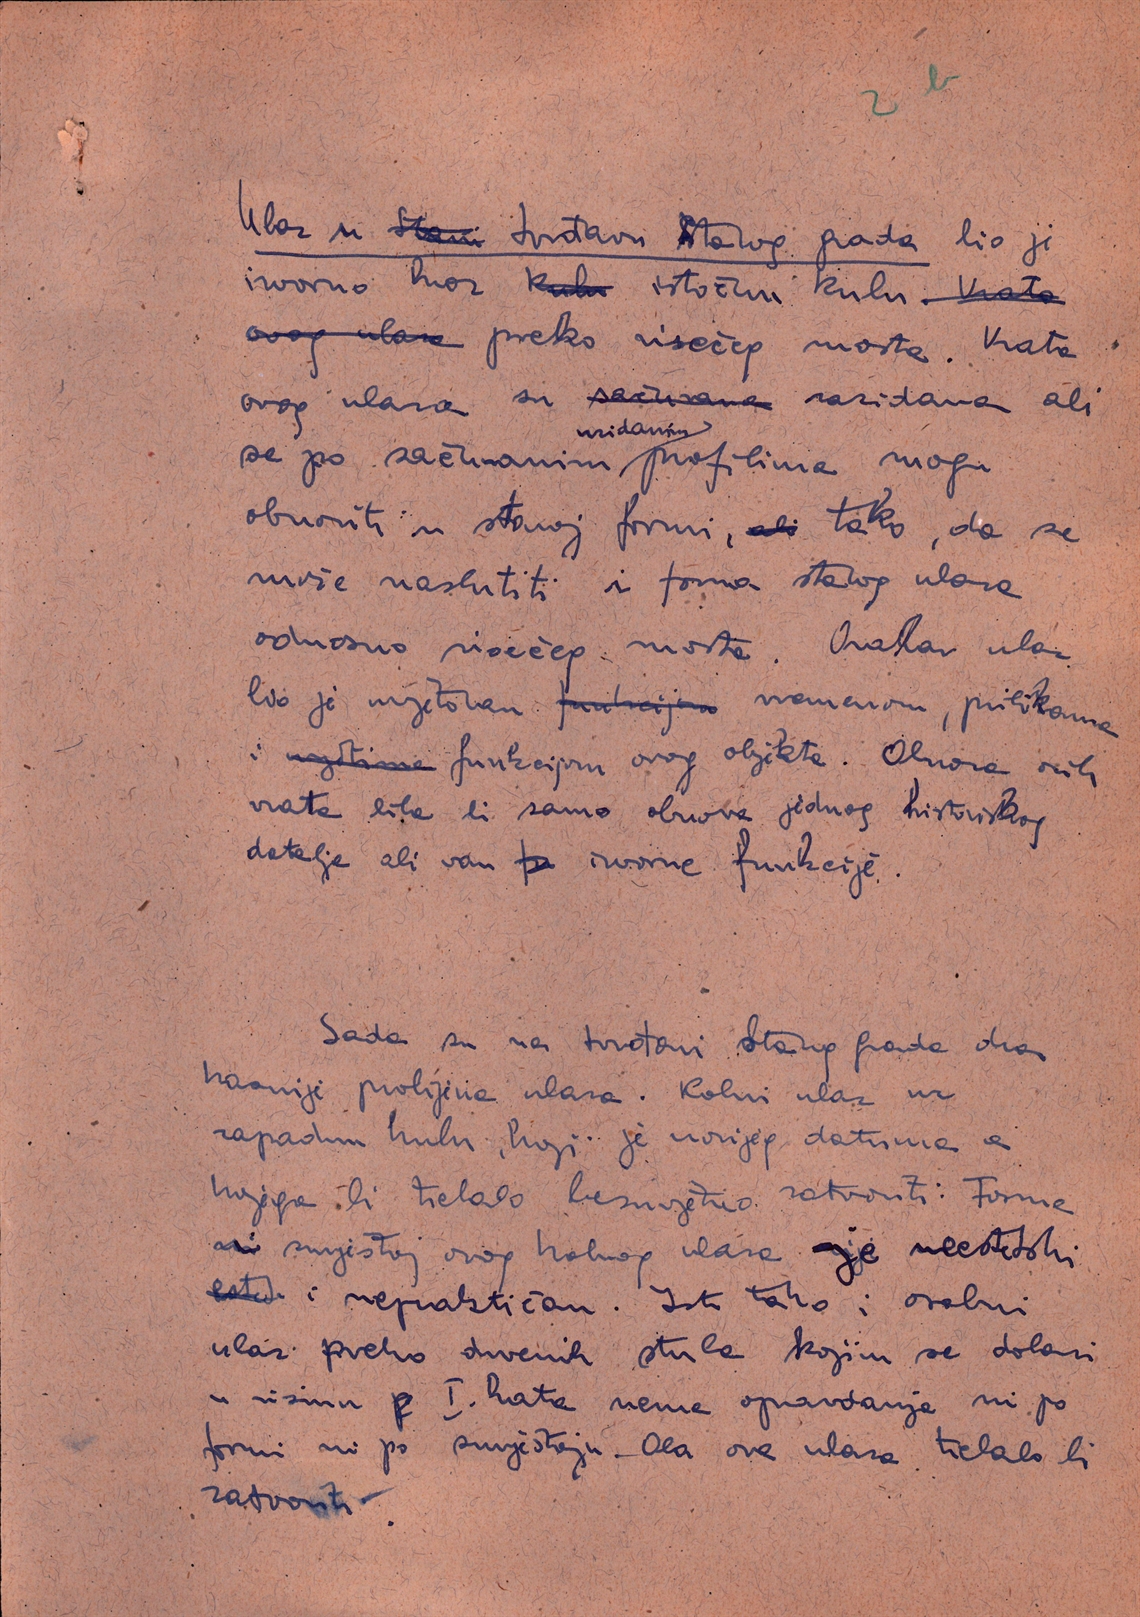 2 b
Ulaz u Stari tvrđavu Starog grada bio je
izvorno kroz kulu istočnu kulu. Vrata
ovog ulaza preko visećeg mosta. Vrata
ovog ulaza su sačuvana zazidana ali
uzidanim
se po sačuvanim profilima mogu
obnoviti u staroj formi, ali tako, da se
može naslutiti i forma starog ulaza
odnosno visećeg mosta. Ovakav ulaz
bio je uvjetovan funkcijom vremenom, prilikama
i funkcijom ovog objekta. Obnova ovih
vrata bila bi samo obnova jednog historiskog
detalja ali van fu izvorne funkcije.
Sada su na tvrđavi Starog grada dva
kasnije probijena ulaza. Kolni ulaz uz
zapadnu kulu, koji je novijeg datuma a
kojega bi trebalo bezuvjetno zatvoriti. Forma
ni smještaj ovog kolnog ulaza nije neestetski
estet i nepraktičan. Isto tako i osobni
ulaz preko drvenih stuba kojim se dolazi
u visinu p I. kata nema opravdanja ni po
formi ni po smještaju. Oba ova ulaza trebalo bi
zatvoriti.